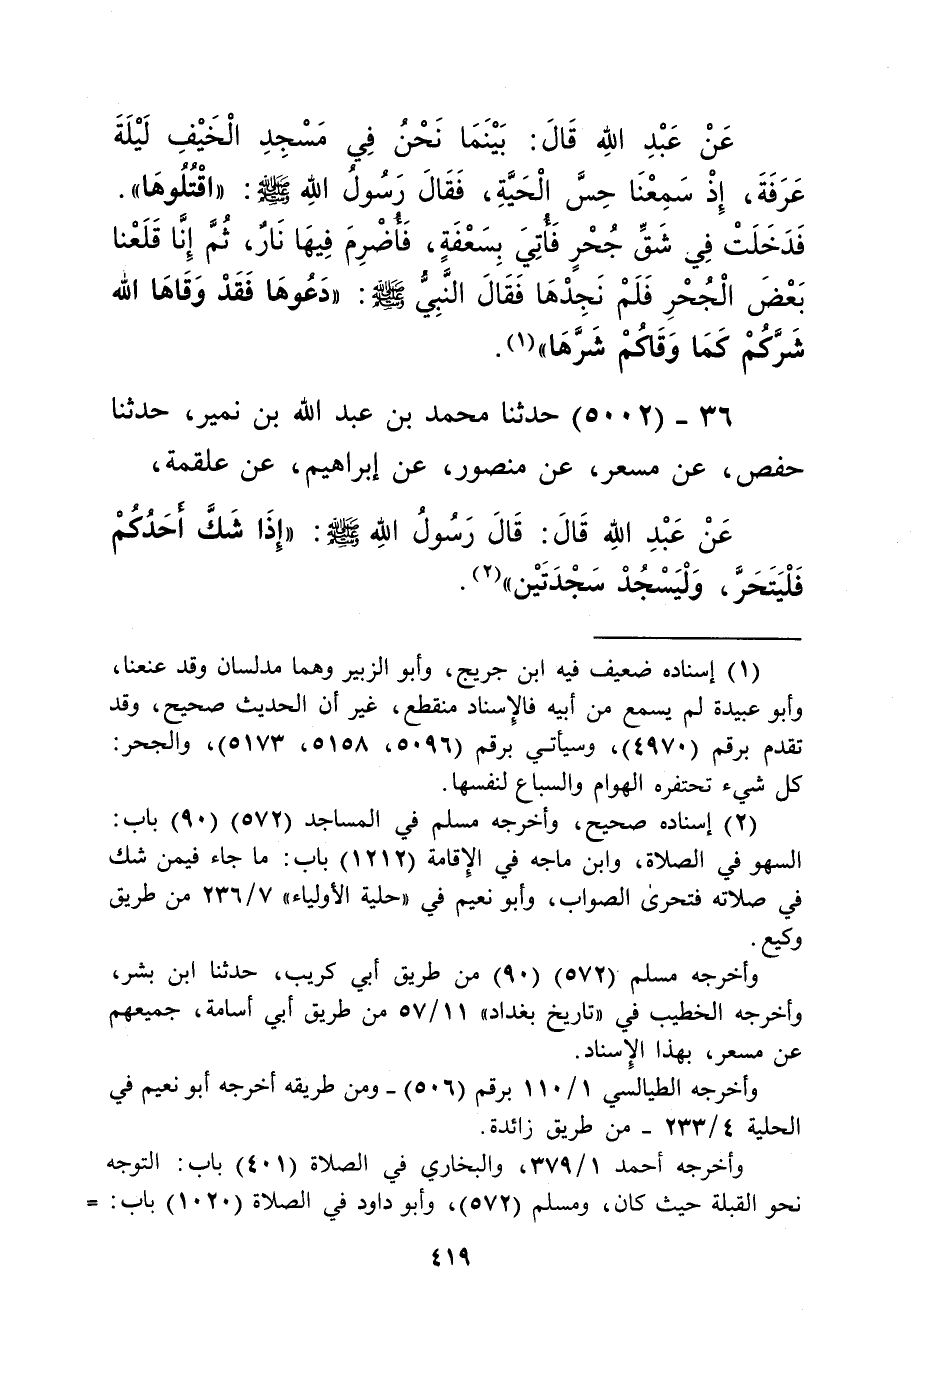 عَنْ عَبْدِ اللهِ قَالَ: بَيْنَمَا نَحْنُ فِي مَسْجِدِ الْخَيْفِ لَيْلَةَ
عَرَفَةَ، إِذْ سَمِعْنَا حِسَّ الْحَيَّةِ، فَقَالَ رَسُولُ اللهِ ﷺ: «اقْتُلُوهَا».
فَدَخَلَتْ فِي شَقِّ جُحْرٍ فَأُتِيَ بِسَعْفَةٍ، فَأُضْرِمَ فِيهَا نَارٌ، ثُمَّ إِنَّا قَلَعْنا
بَعْضَ الْجُحْرِ فَلَمْ نَجِدْهَا فَقَالَ النَّبِيُّ ﷺ: «دَعُوهَا فَقَدْ وَقَاهَا الله
شَرَّكُمْ كَمَا وَقَاكُمْ شَرَّهَا»(١).
٣٦ - (٥٠٠٢) حدثنا محمد بن عبد الله بن نمير، حدثنا
حفص، عن مسعر، عن منصور، عن إبراهيم، عن علقمة،
عَنْ عَبْدِ اللهِ قَالَ: قَالَ رَسُولُ اللهِ ﷺ: «إِذَا شَكَّ أَحَدُكُمْ
فَلْيَتَحَرَّ، وَلْيَسْجُدْ سَجْدَتَيْن»(٢).
(١) إسناده ضعيف فيه ابن جريج، وأبو الزبير وهما مدلسان وقد عنعنا،
وأبو عبيدة لم يسمع من أبيه فالإسناد منقطع، غير أن الحديث صحيح، وقد
تقدم برقم (٤٩٧٠)، وسيأتي برقم (٥٠٩٦، ٥١٥٨، ٥١٧٣)، والجحر:
كل شيء تحتفره الهوام والسباع لنفسها.
(٢) إسناده صحيح، وأخرجه مسلم في المساجد (٥٧٢) (٩٠) باب:
السهو في الصلاة، وابن ماجه في الإقامة (١٢١٢) باب: ما جاء فيمن شك
في صلاته فتحرىٰ الصواب، وأبو نعيم في «حلية الأولياء» ٢٣٦/٧ من طريق
وكيع.
وأخرجه مسلم (٥٧٢) (٩٠) من طريق أبي كريب، حدثنا ابن بشر،
وأخرجه الخطيب في «تاريخ بغداد» ٥٧/١١ من طريق أبي أسامة، جميعهم
عن مسعر، بهذا الإسناد.
وأخرجه الطيالسي ١١٠/١ برقم (٥٠٦) - ومن طريقه أخرجه أبو نعيم في
الحلية ٢٣٣/٤ - من طريق زائدة.
وأخرجه أحمد ٣٧٩/١، والبخاري في الصلاة (٤٠١) باب: التوجه
نحو القبلة حيث كان، ومسلم (٥٧٢)، وأبو داود في الصلاة (١٠٢٠) باب: =
٤١٩